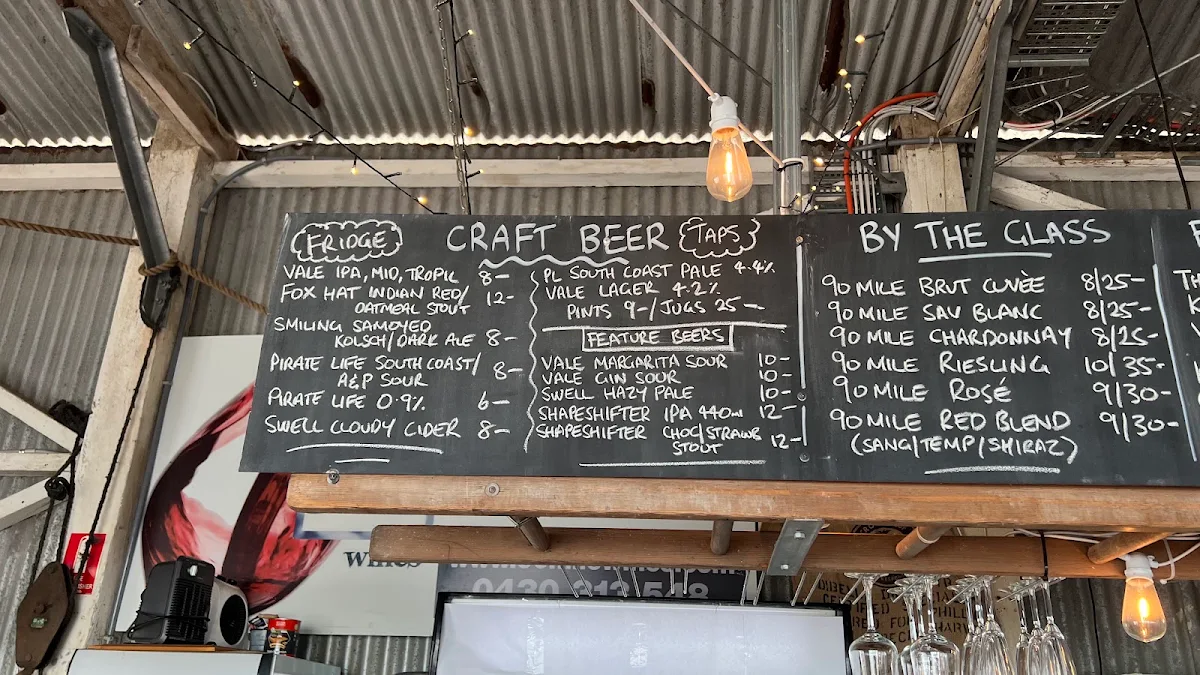 FRIDGE
CRAFT BEER
TAPS
VALE IPA, MID, TROPIC 8-
FOX HAT INDIAN RED/ 12-
OATMEAL STOUT
SMILING SAMOYED
KOLSCH/DARK ALE 8-
PIRATE LIFE SOUTH COAST/ 8-
A&P SOUR
PIRATE LIFE 0.9% 6-
SWELL CLOUDY CIDER 8-
PL SOUTH COAST PALE 4.4%
VALE LAGER 4.2%
PINTS 9-/JUGS 25-
FEATURE BEERS
VALE MARGARITA SOUR 10-
VALE GIN SOUR 10-
SWELL HAZY PALE 10-
SHAPESHIFTER IPA 440ml 12-
SHAPESHIFTER CHOC/STRAWB
STOUT 12-
BY THE GLASS
90 MILE BRUT CUVÈE 8/25-
90 MILE SAV BLANC 8/25-
90 MILE CHARDONNAY 8/25-
90 MILE RIESLING 10/35-
90 MILE ROSÉ 9/30-
90 MILE RED BLEND 9/30-
(SANG/TEMP/SHIRAZ)
wines